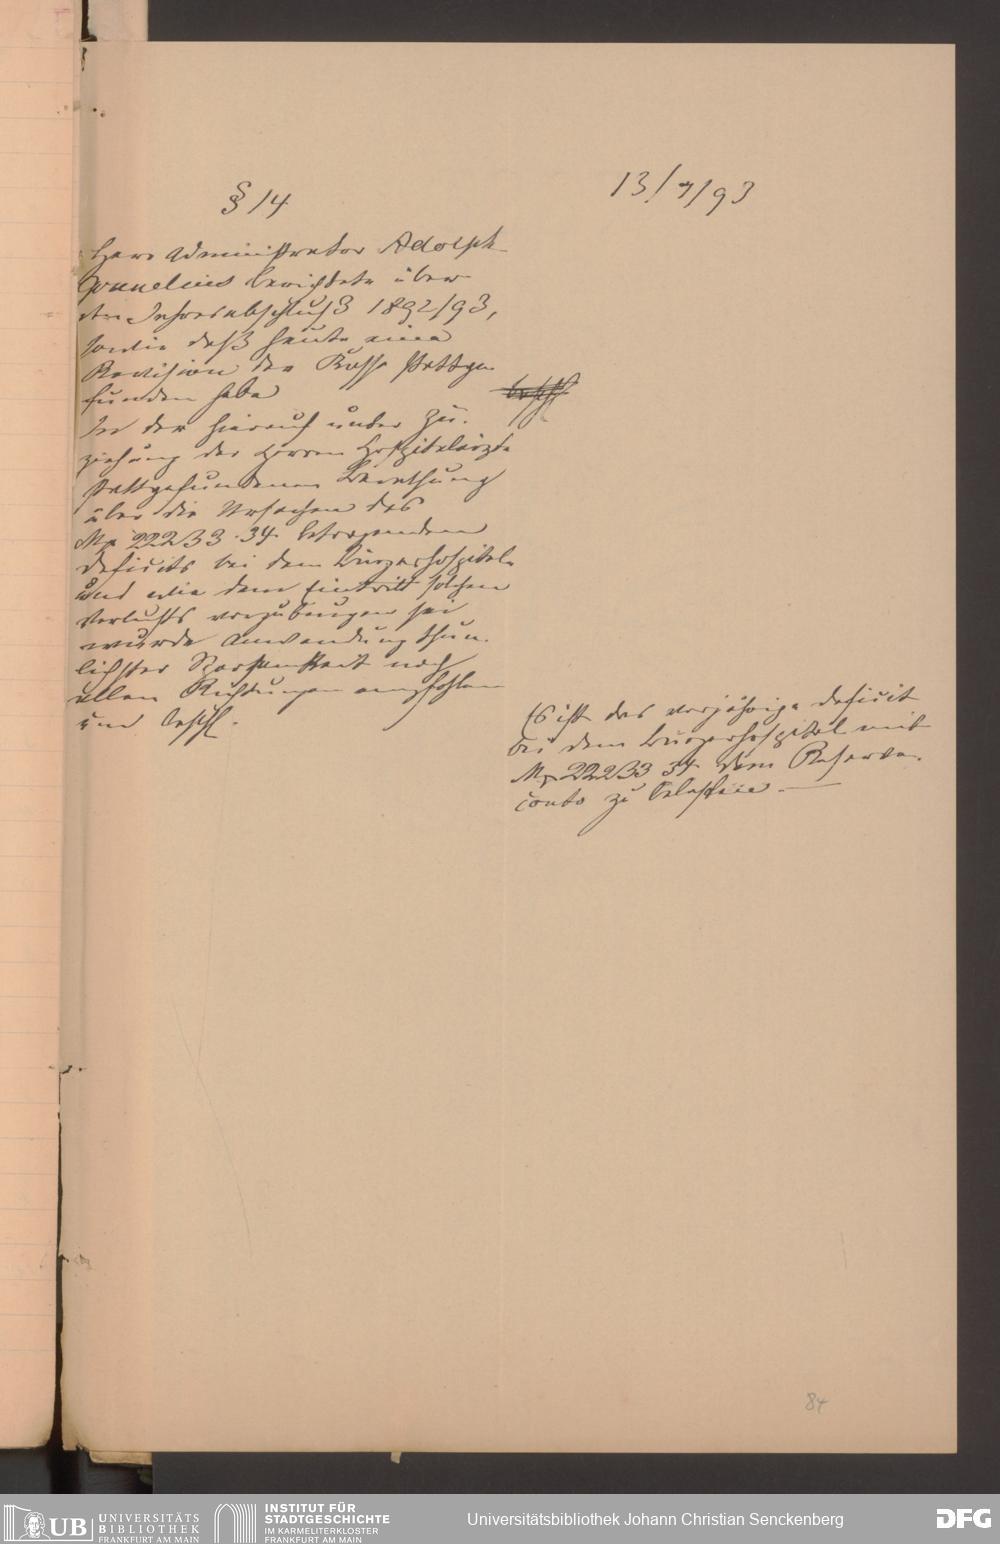 § 14
13/7/93
Herr Administrator Adolph
Cornelius berichtete über
den Jahresabschluß 1892/93,
sowie daß heute eine
Revision der Kasse stattge-
funden habe
In der hierauf unter Zu-
ziehung der Herren Hospitalärzte
stattgefundenen Berathung
über die Ursachen des
M 22233.34. betragenden
Deficits bei dem Bürgerhospital
und wie dem Eintritt solchen
Verlusts vorzubeugen sei
wurde Anwendung thun-
lichster Sparsamkeit nach
allen Richtungen empfohlen
und beschl.
beschl
Es ist das vorjährige Deficit
bei dem Bürgerhospital mit
M 22233 34 dem Reserve-
conto zu belasten. —
84
UB UNIVERSITÄTS
BIBLIOTHEK
FRANKFURT AM MAIN
INSTITUT FÜR
STADTGESCHICHTE
IM KARMELITERKLOSTER
FRANKFURT AM MAIN
Universitätsbibliothek Johann Christian Senckenberg
DFG